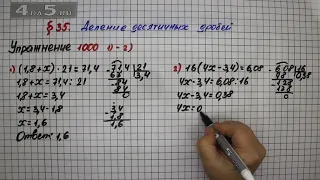 4a5.ru
§ 35. Деление десятичных дробей
Упражнение 1000 1) - 2)
1) (1,8+x)·21=71,4
1,8+x=71,4:21
1,8+x=3,4
x=3,4-1,8
x=1,6
Ответ: 1,6
71,4 21
63 3,4
84
84
0
3,4
1,8
1,6
2) 16(4x-3,4)=6,08
4x-3,4=6,08:16
4x-3,4=0,38
4x=0
6,08 16
48 0,38
128
128
0